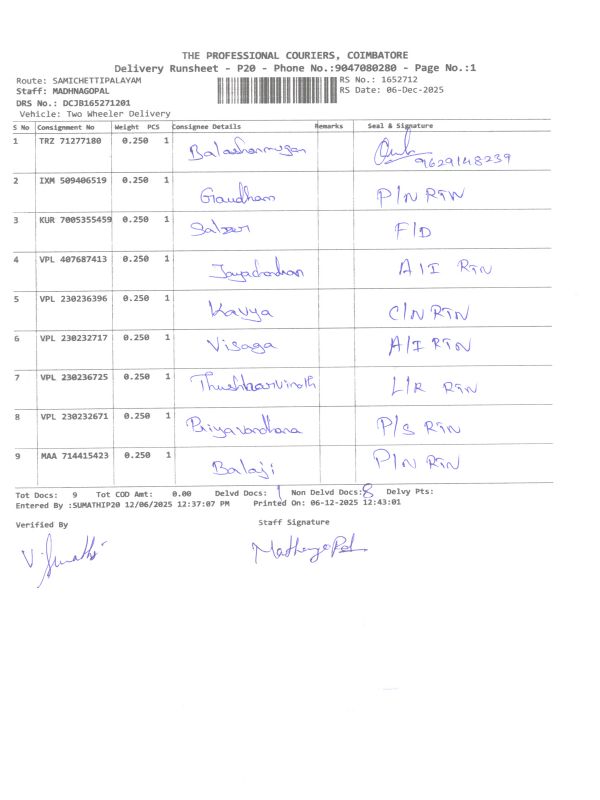 THE PROFESSIONAL COURIERS, COIMBATORE
Delivery Runsheet - P20 - Phone No.:9047080280 - Page No.:1
Route: SAMICHETTIPALAYAM RS No.: 1652712
Staff: MADHNAGOPAL RS Date: 06-Dec-2025
DRS No.: DCJB165271201
Vehicle: Two Wheeler Delivery
S No Consignment No Weight PCS Consignee Details Remarks Seal & Signature
1 TRZ 71277180 0.250 1 Balashanmugan 9629148239
2 IXM 509406519 0.250 1 Gaudham P/N RTN
3 KUR 7005355459 0.250 1 F/D
4 VPL 407687413 0.250 1 Jayachandran A/I RTN
5 VPL 230236396 0.250 1 Kavya C/N RTN
6 VPL 230232717 0.250 1 Visaga A/I RTN
7 VPL 230236725 0.250 1 L/R RTN
8 VPL 230232671 0.250 1 Priyavardhana P/S RTN
9 MAA 714415423 0.250 1 Balaji P/N RTN
Tot Docs: 9 Tot COD Amt: 0.00 Delvd Docs: 1 Non Delvd Docs: 8 Delvy Pts:
Entered By :SUMATHIP20 12/06/2025 12:37:07 PM Printed On: 06-12-2025 12:43:01
Verified By Staff Signature
V. Sumathi